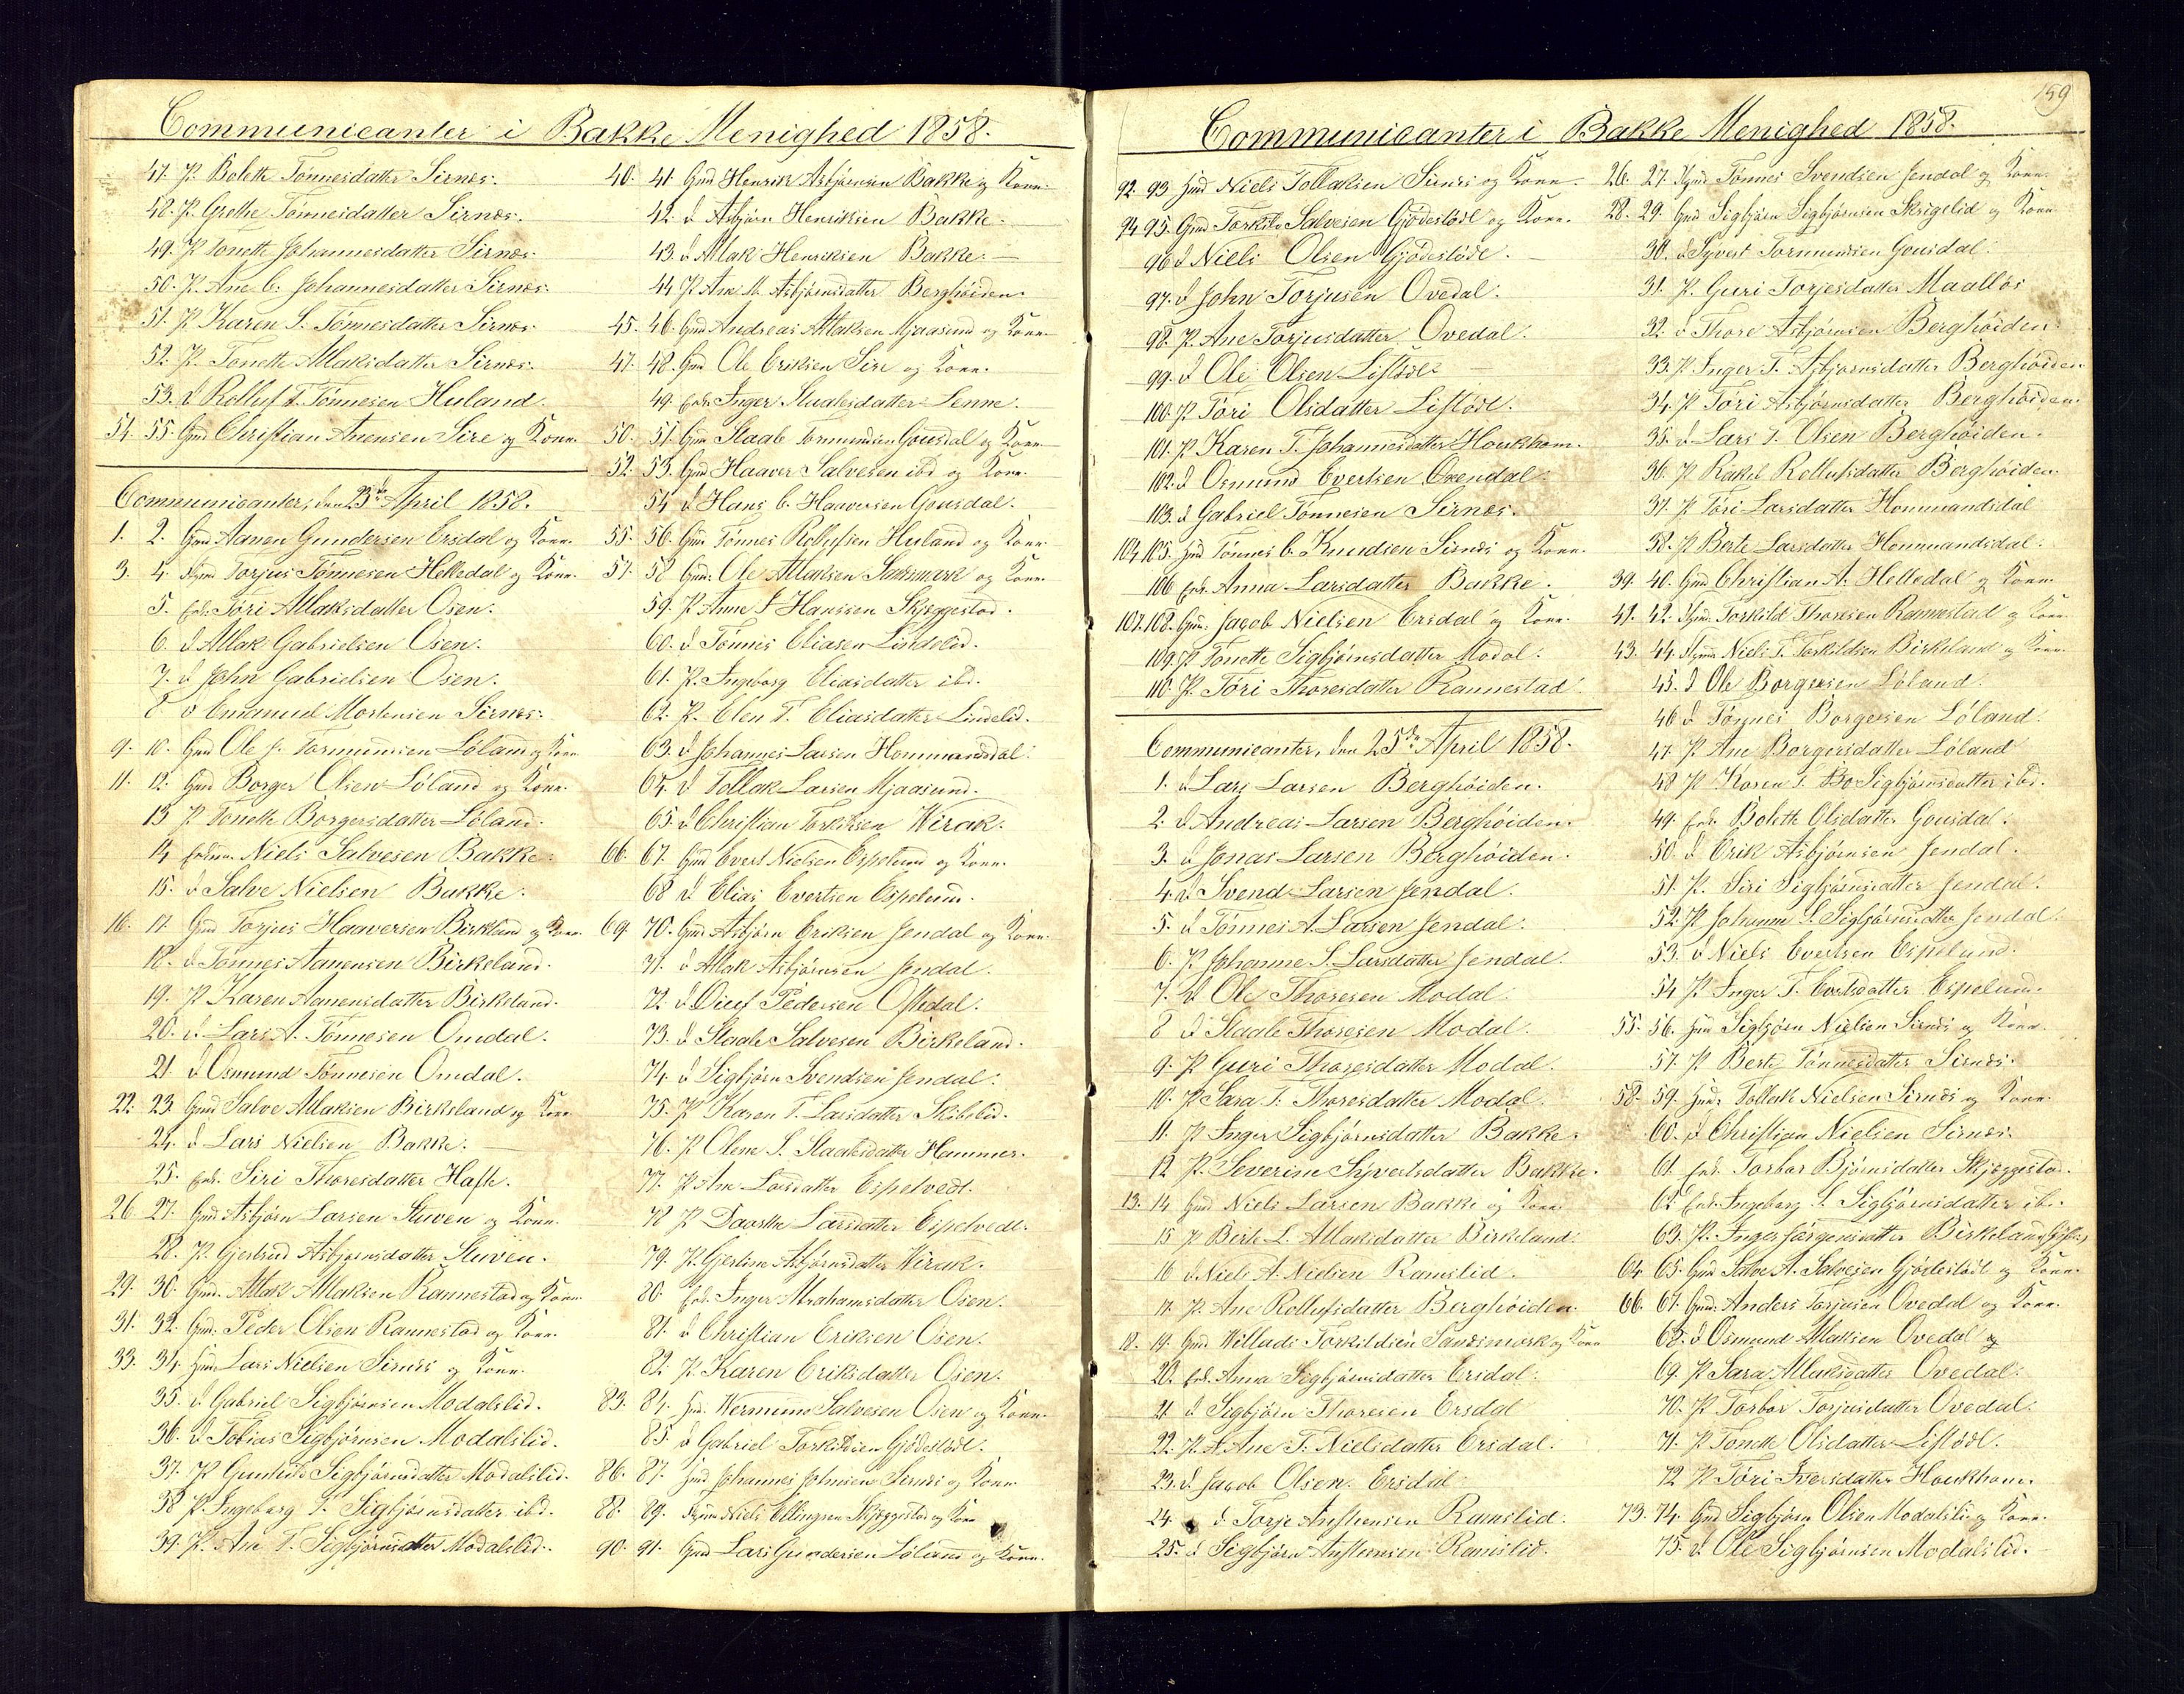 Communicanter i Bakke Menighed 1858.
47. P. Bolette Tønnesdatter Sirnes.
48. P. Grethe Tønnesdatter Sirnes.
49. P Tonette Johannesdatter Sirnes.
50. P. Ane C. Johannesdatter Sirnes.
51. P Karen S. Tønnesdatter Sirnes.
52. P. Tonette Atlaksdatter Sirnes.
53. d Rolluf T. Tønnesen Huland.
54. 55. Gmd Christian Anensen Sire og Kone.
Communicanter, den 23de April 1858.
1. 2. Gmd Aanen Gundersen Ersdal og Kone.
3. 4. Torjus Tønnesen Helledal og Kone.
5. Enk. Tøri Atlaksdatter Osen.
6. d Atlak Gabrielsen Osen.
7. d John Gabrielsen Osen.
8 d Emanuel Mortensen Sirnes.
9. 10. Gmd Ole J. Tormundsen Løland og Kone
11. 12. Gmd Borger Olsen Løland og Kone.
13 P Tonette Borgersdatter Løland.
14 Enkem. Niels Salvesen Bakke.
15. d Salve Nielsen Bakke.
16. 17. Gmd Torjus Haaversen Birkland og Kone.
18. d Tønnes Aanensen Birkeland.
19. P Karen Aanensdatter Birkeland.
20. d Lars A. Tønnesen Omdal.
21. d Osmund Tønnesen Omdal.
22. 23. Gmd Salve Atlaksen Birkeland og Kone
24. d Lars Nielsen Bakke.
25. Enk. Siri Thoresdatter Hafte.
26. 27. Gmd Asbjørn Larsen Stuven og Kone.
28. P. Gjertrud Asbjørnsdatter Stuven.
29. 30. Gmd. Atlak Atlaksen Rannestad og Kone
31. 32. Gmd. Peder Olsen Rannestad og Kone.
33. 34. Hmd Lars Nielsen Sirnes og Kone.
35. d Gabriel Sigbjørnsen Modalslid.
36. d Tobias Sigbjørnsen Modalslid.
37. P Gunhild Sigbjørnsdatter Modalslid.
38 P. Ingeborg T. Sigbjørnsdatter ibd.
39. P. Ane T. Sigbjørnsdatter Modalslid.
40. 41. Gmd Henrik Asbjørnsen Bakke og Kone.
42. d Asbjørn Henriksen Bakke.
43. d Atlak Henriksen Bakke.
44 P Ane M. Asbjørnsdatter Berghøiden.
45. 46. Gmd Andreas Atlaksen Mjaasund og Kone
47. 48. Gmd Ole Eriksen Sire og Kone.
49. Enk. Inger Staalesdatter Lenne.
50. 51. Gmd Staale Tormundsen Gousdal og Kone
52. 53. Gmd Haaver Salvesen ibd og Kone.
54 d Hans C. Haaversen Gousdal.
55. 56. Gmd Tønnes Rollufsen Huland og Kone
57. 58 Gmd. Ole Atlaksen Sandsmark og Kone.
59. P. Anne S Hanssen Skjeggestad.
60. d Tønnes Eliasen Lindelid.
61. P. Ingeborg Eliasdatter ibd.
62. P. Elen T. Eliasdatter Lindelid.
63. d Johannes Larsen Hommandsdal.
64. d Tollak Larsen Mjaasund.
65. d Christian Torkelsen Wirak.
66. 67. Gmd Evert Nielsen Espelund og Kone.
68 d Elias Evertsen Espelund.
69 70. Gmd Asbjørn Eriksen Jendal og Kone.
71. d Atlak Asbjørnsen Jendal.
72. d Oluf Pedersen Oftedal.
73. d Staale Salvesen Birkeland.
74. d Sigbjørn Svendsen Jendal.
75. P Karen T. Larsdatter Skibelid.
76. P Olene S. Staalesdatter Hammer.
77. P Ane Larsdatter Espetvedt.
78 P Daarthe Larsdatter Espetvedt.
79. P. Gjertine Asbjørnsdatter Wirak.
80. Enk. Inger Abrahamsdatter Osen.
81. d Christian Eriksen Osen.
82. P. Karen Eriksdatter Osen.
83. 84. Hmd. Wermund Salvesen Osen og Kone.
85. d Gabriel Torkildsen Gjødesløde.
86. 87. Hmd Johannes Johnsen Sirnes og Kone
88. 89. Niels Ellingsen Skjeggestad og Kone
90. 91. Gmd Lars Gundersen Løland og Kone.
159
Communicanter i Bakke Menighed 1858.
92. 93 Hmd Niels Tollaksen Sirnes og Kone.
94 95. Gmd Torkild Salvesen Gjødesløde og Kone.
96 d Niels Olsen Gjødesløde.
97. d John Torjusen Ovedal.
98. P. Ane Torjusdatter Ovedal.
99. d Ole Olsen Lisløde
100. P. Tøri Olsdatter Lisløde.
101. P Karen T. Johannesdatter Houkhom.
102. d Osmund Evertsen Oxendal.
103. d Gabriel Tønnesen Sirnes.
104. 105. Hmd Tønnes C. Knudsen Sirnes og Kone.
106 Enk. Anna Larsdatter Bakke.
107. 108. Gmd. Jacob Nielsen Ersdal og Kone.
109. P Tonette Sigbjørnsdatter Modal.
110. P. Tøri Thoresdatter Rannestad.
Communicanter, den 25de April 1858.
1. d Lars Larsen Berghøiden.
2. d Andreas Larsen Berghøiden.
3. d Jonas Larsen Berghøiden.
4. d Svend Larsen Jendal.
5. d Tønnes A. Larsen Jendal.
6. P Johanne S. Larsdatter Jendal.
7. d Ole Thoresen Modal.
8 d Staale Thoresen Modal.
9. P Guri Thoresdatter Modal.
10. P Sara T. Thoresdatter Modal.
11. P Inger Sigbjørnsdatter Bakke.
12 P. Severine Syvertsdatter Bakke.
13. 14. Gmd Niels Larsen Bakke og Kone
15 P Berte L. Atlaksdatter Birkeland.
16 d Niels A. Nielsen Ramslid.
17. P. Ane Rollufsdatter Berghøiden.
18. 19. Gmd Willads Torkildsen Sandsmark og Kone
20. Enk. Anna Sigbjørnsdatter Ersdal.
21. d Sigbjørn Thoresen Ersdal
22. P. Ane T. Nielsdatter Ersdal.
23. d Jacob Olsen Ersdal
24. d. Torje Austensen Ramslid.
25. d Sigbjørn Austensen Ramslid.
26. 27. Tønnes Svendsen Jendal og Kone.
28. 29. Gmd Sigbjørn Sigbjørnsen Skrigelid og Kone
30. d Syvert Tormundsen Gousdal.
31. P. Guri Torjesdatter Maalløs
32. d Thore Asbjørnsen Berghøiden.
33. P Inger T. Asbjørnsdatter Berghøiden.
34. P Tøri Asbjørnsdatter Berghøiden.
35. d Lars T. Olsen Berghøiden.
36. P Rakel Rollufsdatter Berghøiden.
37. P Tøri Larsdatter Hommandsdal
38. P Berte Larsdatter Hommandsdal.
39. 40. Gmd Christian A. Helledal og Kone.
41. 42. Torkild Thoresen Rannestad og Kone.
43. 44. Niels T. Torkildsen Birkeland og Kone.
45. d Ole Borgersen Løland.
46 d Tønnes Borgersen Løland.
47. P. Ane Borgersdatter Løland
48 P Karen T. Sigbjørnsdatter ibd.
49. Enk. Bolette Olsdatter Gousdal.
50. d Erik Asbjørnsen Jendal.
51. P. Siri Sigbjørnsdatter Jendal.
52. P Johanne S. Sigbjørnsdatter Jendal.
53. d Niels Evertsen Espelund.
54 P Inger T. Evertsdatter Espelund.
55. 56. Hmd Sigbjørn Nielsen Sirnes og Kone.
57. P Berte Tønnesdatter Sirnes.
58. 59. Hmd. Tollak Nielsen Sirnes og Kone.
60. d Christian Nielsen Sirnes.
61. Enk. Torbor Bjørnsdatter Skjeggestad.
62 Enk. Ingeborg S. Sigbjørnsdatter ib.
63. P. Inger Jørgensdatter Birkeland
64 65. Gmd Salve A. Salvesen Gjødesløde og Kone.
66. 67. Gmd. Anders Torjusen Ovedal og Kone.
68. d Osmund Atlaksen Ovedal og
69. P Sara Atlaksdatter Ovedal.
70. P Torbor Torjusdatter Ovedal.
71. P Tonette Olsdatter Lisløde.
72 P Tøri Iversdatter Houkhom.
73. 74. Gmd Sigbjørn Olsen Modalsli og Kone.
75. d. Ole Sigbjørnsen Modalslid.